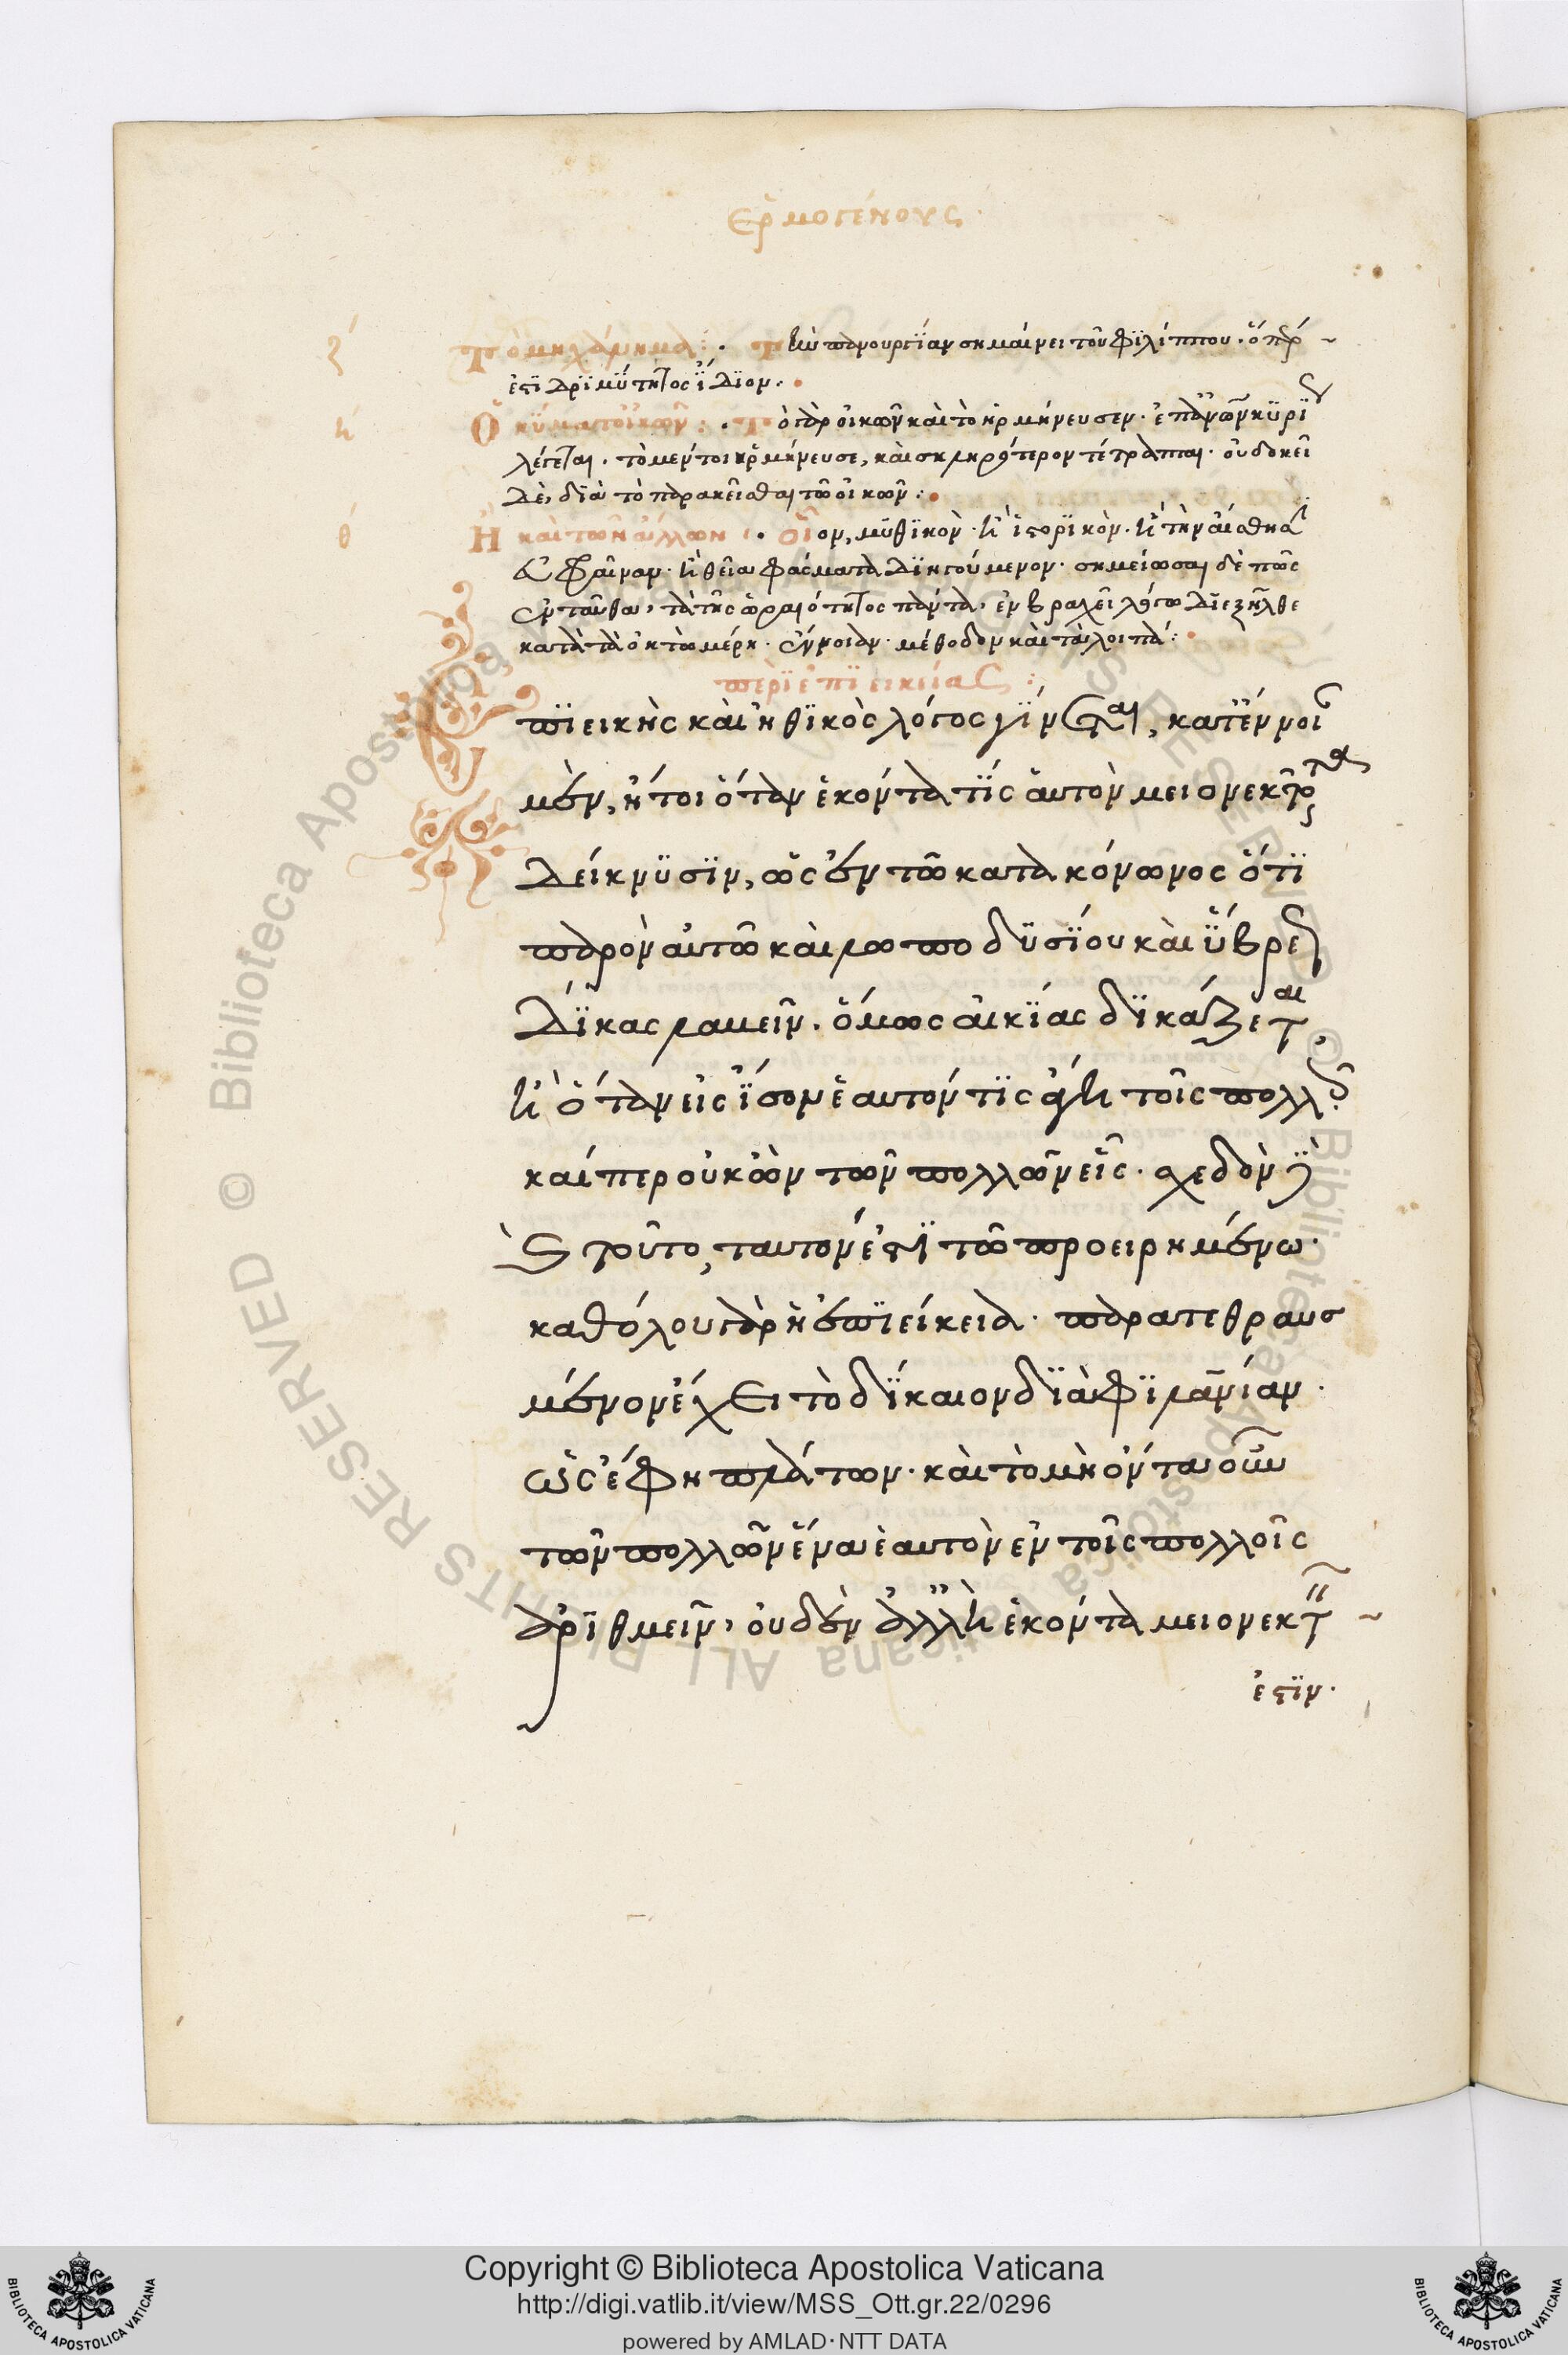 Ἑρμογένους
ζ΄ Τὸ μηχάνημα: τὴν πανουργίαν σημαίνει τοῦ φϊλίππου. ὅπερ
ἐστὶ δρϊμΰτητος ἴδϊον.
η΄ Ὁ κύνα τοικῶν: τὸ γὰρ οἰκῶν καὶ τὸ ἡρμήνευσεν. ἐπ' ἀνῶν κϋρί
λέγεται. τὸ μέντοι ἡρμήνευσε, καὶ σκληρότερον τέτραπται. οὐ δοκεῖ
δὲ, διὰ τὸ παρακεῖσθαι τῶ οἰκῶν:
θ΄ Ἢ καὶ τῶν ἄλλων: οἷον, μϋθϊκὸν. ἢ ἱστορϊκὸν. ἢ τὴν αἰσθη
εὐφραῖναν. ἢ θεῖα φάσματα δϊηγούμενον. σημείωσαι δὲ πῶς
ἐνταῦθα, τὰ τῆς ὡραιότητος πάντα, ἐν βραχεῖ λόγω διεξῆλθε
κατὰ τὰ ὀκτὼ μέρη. ἔννοιαν. μέθοδον καὶ τὰ λοιπά:
περὶ ἐπιεικείας:
Ἐπϊεικὴς καὶ ἠθϊκὸς λόγος γίνεται, κατ' ἔννοι
μὲν, ἤτοι ὅταν ἑκόντα τϊς ἁυτὸν μειονεκτοῦντα
δείκνϋσϊν, ὡς ἐν τῶ κατὰ κόνωνος ὅτϊ
παρὸν αὐτῶ καὶ λωποδϋσίου καὶ ὕβρεως
δίκας λαχεῖν. ὅμως αἰκίας δϊκάζεται,
ἢ ὅταν εἰς ἴσον ἑαυτόν τϊς ἄγη τοῖς πολλοῖς
καίπερ οὐκ ὢν τῶν πολλῶν εἷς. σχεδὸν γὰρ
καὶ τοῦτο, ταυτόν ἐστὶ τῶ προειρημένω.
καθόλου γὰρ ἡ ἐπϊείκεια. παρατεθραυσ
μένον ἔχει τὸ δίκαιον δϊὰ φϊλανίαν.
ὡς ἔφη πλάτων. καὶ τὸ μὴ ὄντα οὖν
τῶν πολλῶν ἕνα ἑαυτὸν ἐν τοῖς πολλοῖς
ἀρϊθμεῖν, οὐδὲν ἀλλ' ἢ ἑκόντα μειονεκτεῖν
ἐστϊν.
Copyright © Biblioteca Apostolica Vaticana
http://digi.vatlib.it/view/MSS_Ott.gr.22/0296
powered by AMLAD·NTT DATA
BIBLIOTECA APOSTOLICA VATICANA
BIBLIOTECA APOSTOLICA VATICANA
© Biblioteca Apostolica Vaticana ALL RIGHTS RESERVED